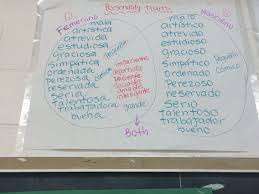 Personality Traits
Femenino
mala
artística
atrevida
estudiosa
Graciosa
simpática
ordenada
perezosa
reservada
seria
talentosa
trabajadora
buena
impaciente
deportista
paciente
inteligente
grande
Both
Masculino
malo
artístico
atrevido
estudioso
Gracioso
Simpático
Ordenado
Perezoso
reservado
Serio
talentoso
trabajador
bueno
Pequeño
Cómico